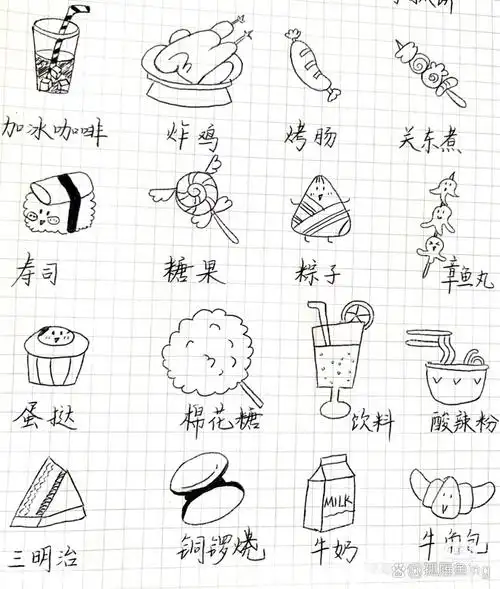 加冰咖啡 炸鸡 烤肠 关东煮
寿司 糖果 粽子 章鱼丸
蛋挞 棉花糖 饮料 酸辣粉
MILK
三明治 铜锣烧 牛奶 牛角包